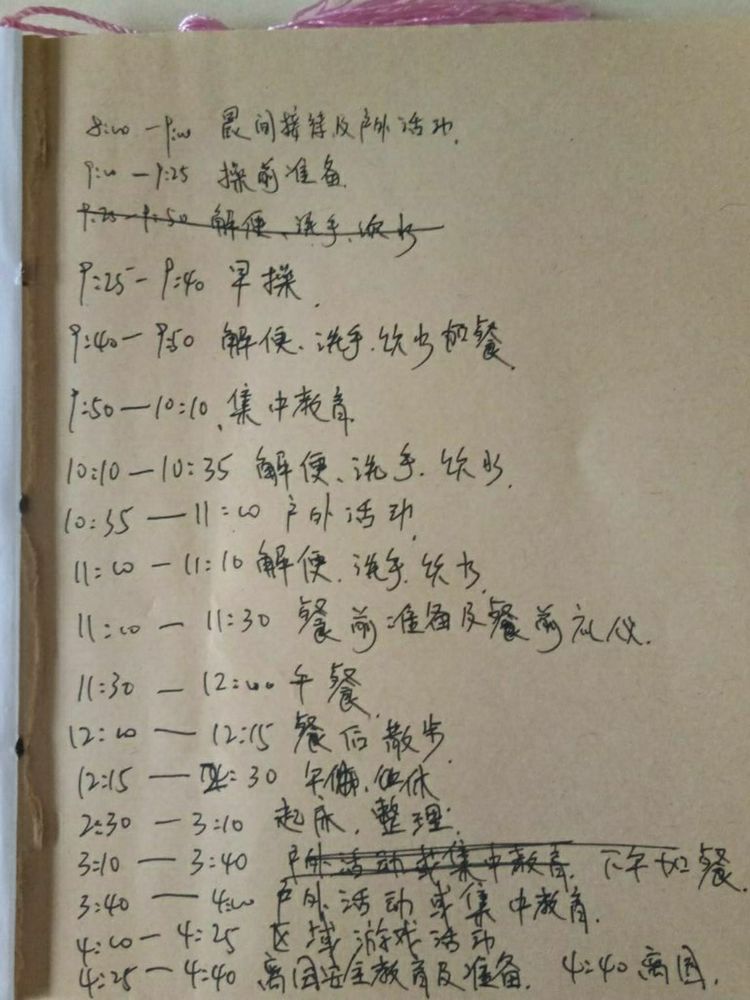 8:00 — 9:00 晨间接待及户外活动.
9:00 — 9:25 操前准备.
9:25 - 9:50 解便、洗手、饮水
9:25 - 9:40 早操.
9:40 — 9:50 解便、洗手、饮水加餐.
9:50 — 10:10、集中教育.
10:10 — 10:35 解便、洗手、饮水.
10:35 — 11:00 户外活动.
11:00 — 11:10 解便、洗手、饮水.
11:10 — 11:30 餐前准备及餐前礼仪.
11:30 — 12:00 午餐.
12:00 — 12:15 餐后散步.
12:15 — 2:30 午休
2:30 — 3:10 起床、整理.
3:10 — 3:40 户外活动或集中教育. 下午加餐.
3:40 — 4:00 户外活动或集中教育.
4:00 — 4:25 区域游戏活动
4:25 — 4:40 离园安全教育及准备. 4:40 离园.